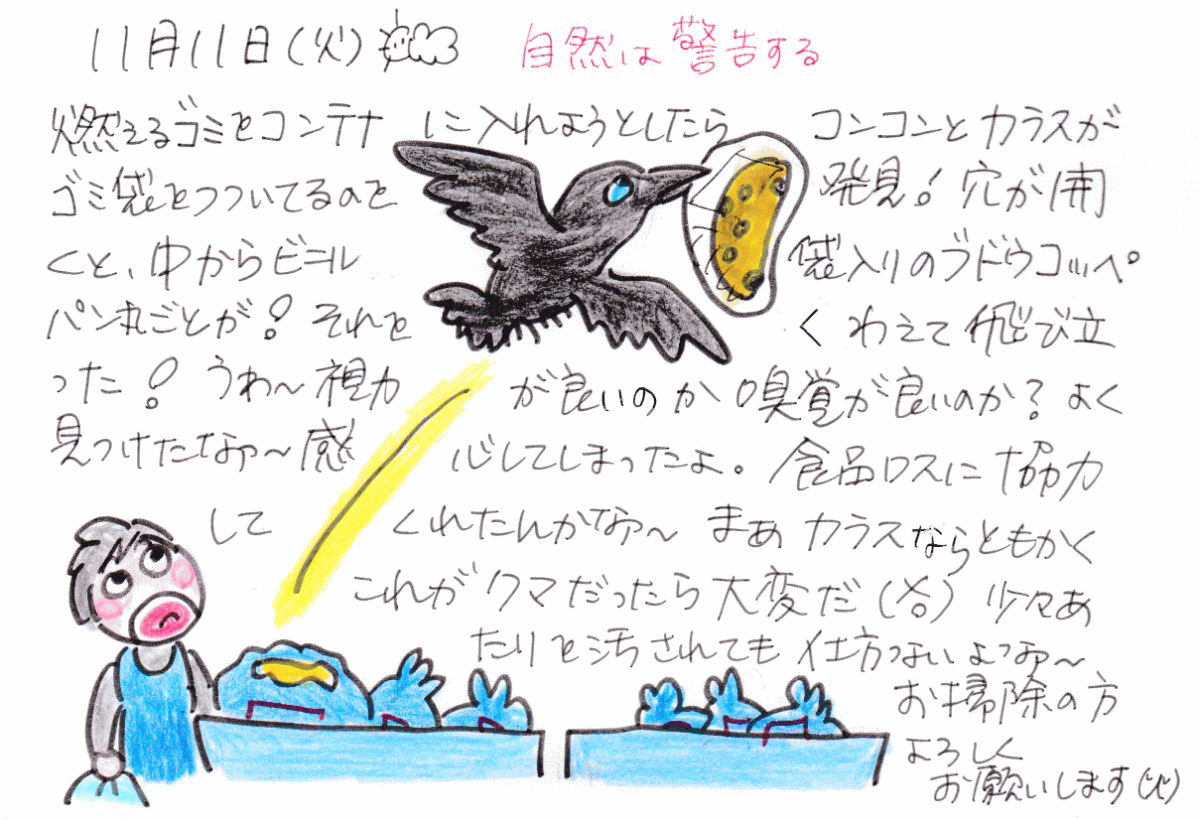 11月11日(火) 自然は警告する
燃えるゴミをコンテナに入れようとしたら コンコンとカラスが
ゴミ袋をつついてるのを発見!穴が開
くと、中からビニル袋入りのブドウコッペ
パン丸ごとが!それをくわえて飛び立
った!うわ〜視力が良いのか嗅覚が良いのか?よく
見つけたなァ〜感心してしまったよ。食品ロスに協力
してくれたんかなァ〜 まあカラスならともかく
これがクマだったら大変だ(笑)少々あ
たりを汚されても仕方ないよなァ〜
お掃除の方
よろしく
お願いします(火)